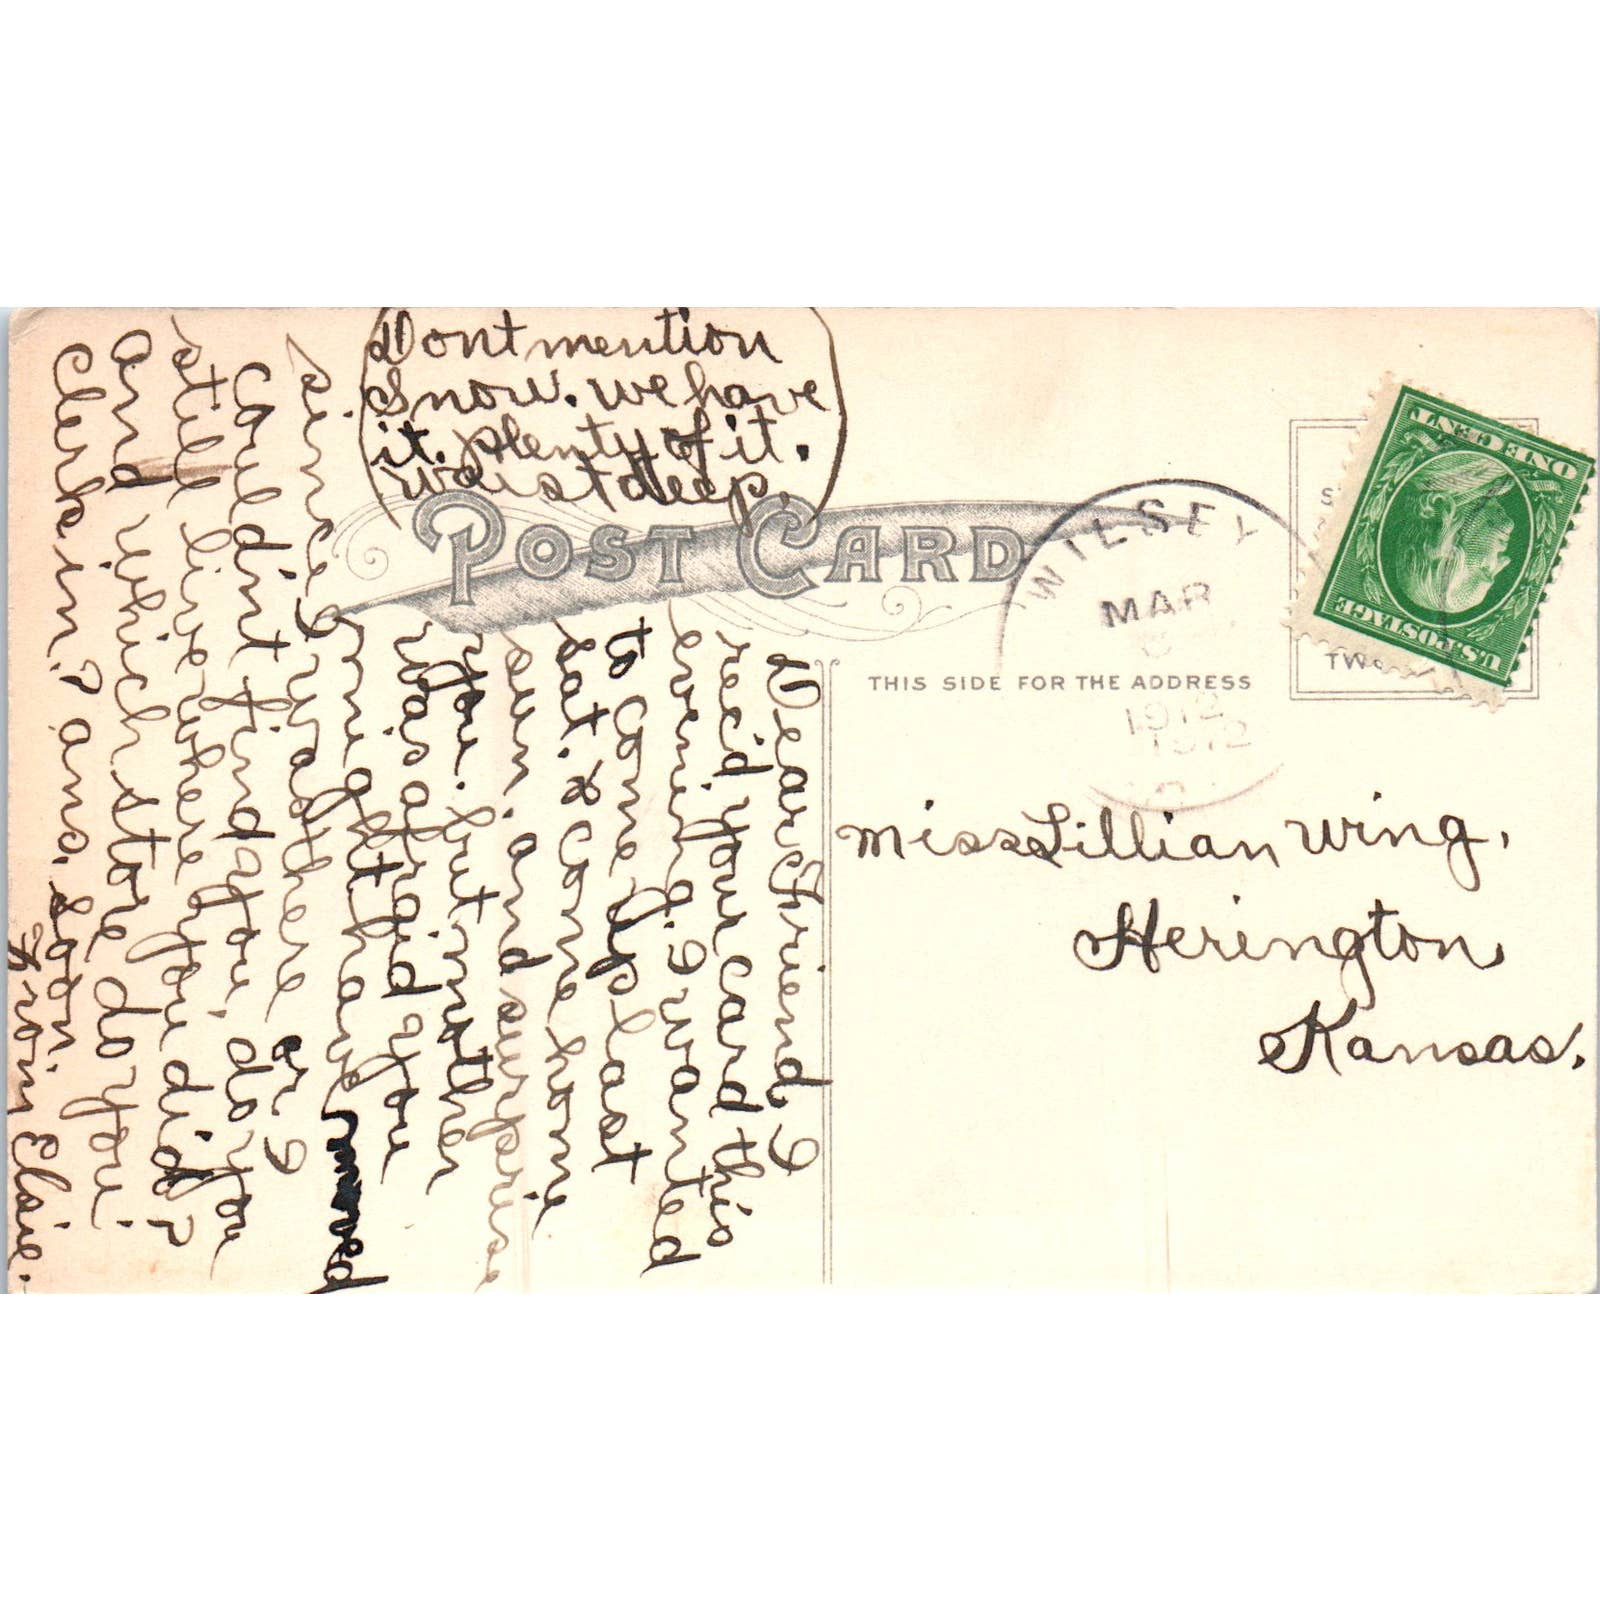 Dont mention
Snow. we have
it. plenty of it.
waist deep.
POST CARD
WILSEY
MAR
1912
1912
THIS SIDE FOR THE ADDRESS
ONE CENT
U.S. POSTAGE
TWO
Miss Lillian Wing,
Herington,
Kansas.
Dear Friend, I
rec'd your card this
evening. I wanted
to come up last
sat. & come home
sun. and surprise
you. but mother
was afraid you
might have moved
since I was there or I
couldint find you, do you
still live where you did?
And which store do you
clerk in? ans. soon.
From Elsie.